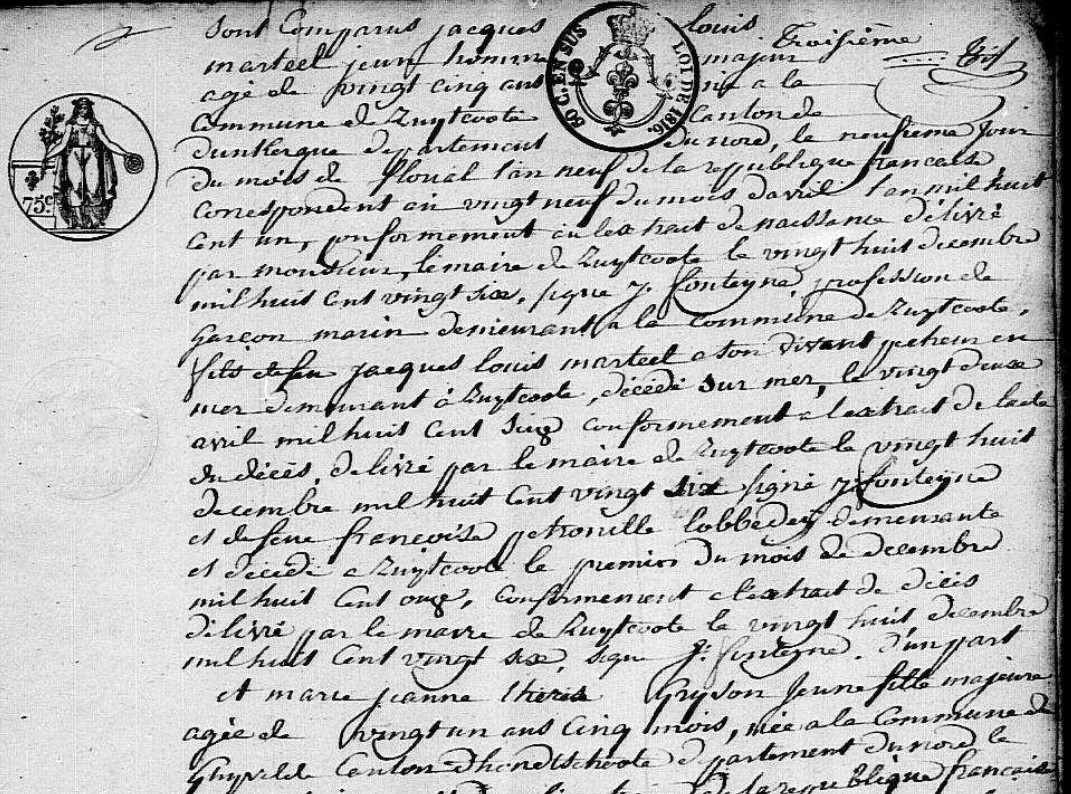 sont Comparus jacques louis
Troisième
marteel jeun homme majeur
agé de vingt cinq ans né a la
80 C. EN SUS
LOI DE 1816.
Commune de Zuytcoote Canton de
75 c
dunkerque departement du nord, le neufieme jour
du mois de floreal l'an neuf de la republique francaise
Correspondent au vingt neuf du mois davril l'an mil huit
Cent un, conformement au lextrait de naissance délivré
par monsieur, le maire de Zuytcoote le vingt huit decembre
mil huit Cent vingt six, signe J. fonteyne, profession de
garcon marin demeurant a la commune de Zuytcoote,
fils de feu jacques louis marteel a son vivant pecheur en
mer demeurant à Zuytcoote, décédé sur mer, le vingt deux
avril mil huit Cent conformement a lextrait de lacte
du décès, delivré par le maire de Zuytcoote le vingt huit
decembre mil huit Cent vingt six signé J. fonteyne
et de feue francoise petronille lobbedey demeurante
et décédé a Zuytcoote le premier du mois de decembre
mil huit Cent onze, Conformement a lextrait de décès
délivré par le maire de Zuytcoote le vingt huit decembre
mil huit Cent vingt six, signe J. fonteyne. d'un part
et marie jeanne theres Gryson Jeune fille majeure
agée de vingt un ans Cinq mois, née a la Commune de
Ghyvelde Canton dhondtschoote departement du nord le
de la republique francaise